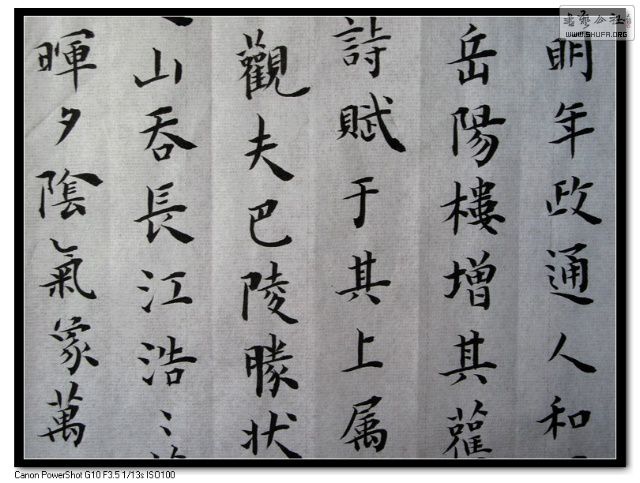 书艺公社
WWW.SHUFA.ORG
明年政通人和
岳陽樓增其舊
詩賦于其上属
觀夫巴陵勝狀
山吞長江浩〻
暉夕陰氣象萬
Canon PowerShot G10 F3.5 1/13s ISO100